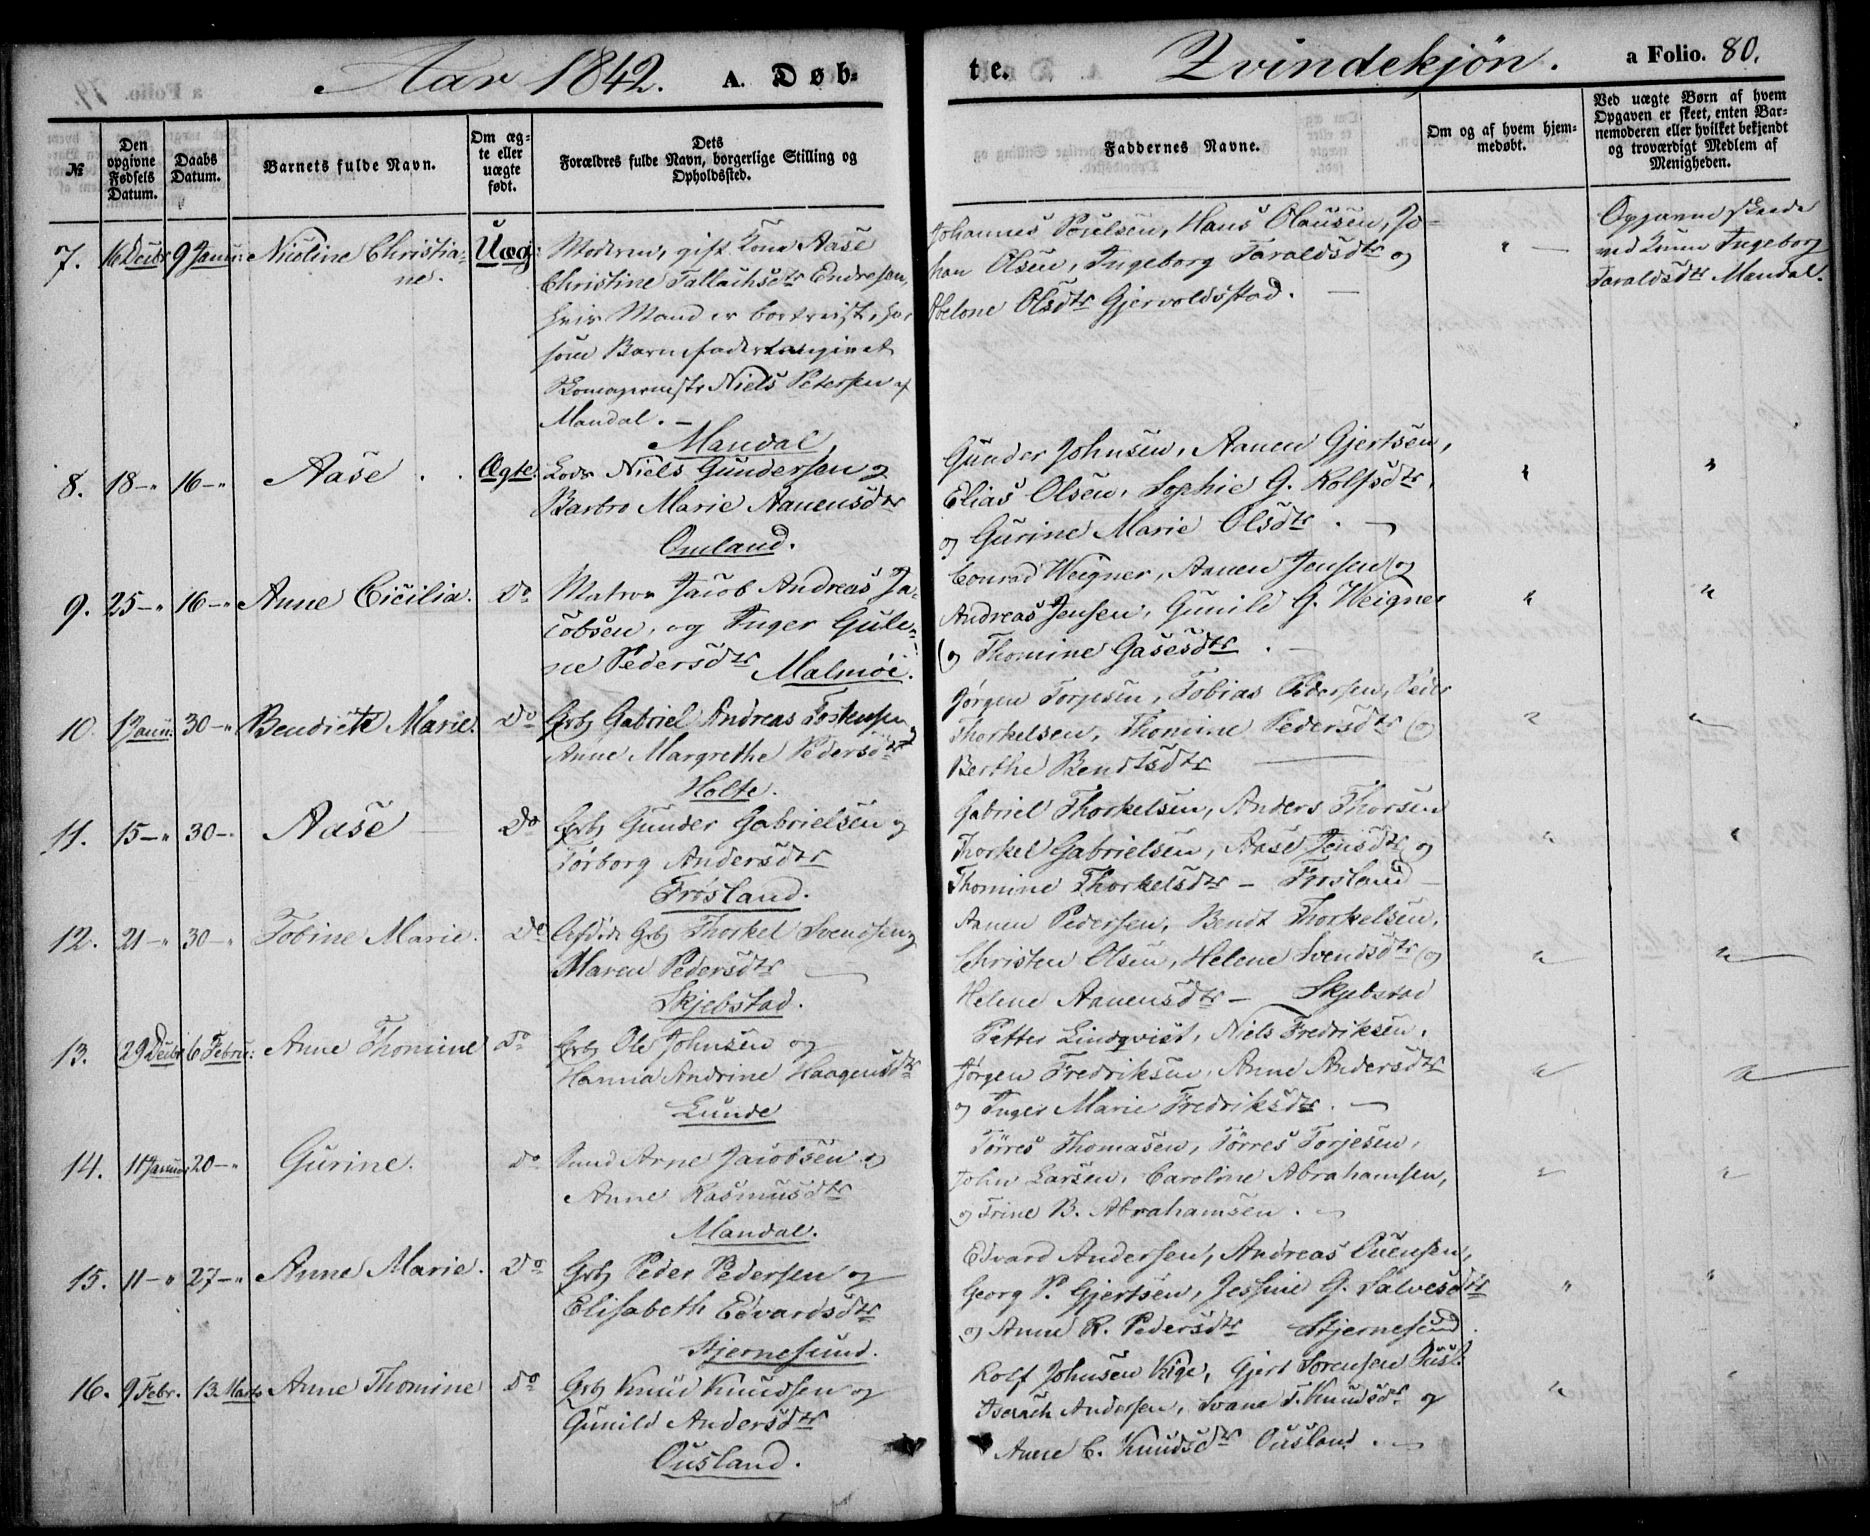 Aar 1842. A. Døb-
te. Qvindekjön. a Folio. 80.
№
Den opgivne Fødsels Datum.
Daabs Datum.
Barnets fulde Navn.
Om ægte eller uægte født.
Dets Forældres fulde Navn, borgerlige Stilling og Opholdssted.
Faddernes Navne.
Om og af hvem hjemmedøbt.
Ved uægte Børn af hvem Opgaven er skeet, enten Barnemoderen eller hvilket bekjendt og troværdigt Medlem af Menigheden.
7. 16 Decbr 9 Januar Nicoline Christiane. Uæg:
Moderen, gift Kone Aase
Christine Tallachsdtr Endresen,
hvis Mand er bortreist,
som Barnefader angivet
Niels Petersen af
Mandal. –
Johannes Poulsen, Hans Olausen, Jo-
han Olsen, Ingeborg Taraldsdtr og
Olsdtr Gjervoldsstad. –
Opgaven skeede
ved Ingeborg
Taraldsdtr Mandal.
8. 18 – " 16 – " Aase . . Ægte.
Mandal
Lods Niels Gundersen og
Barbro Marie Aanensdtr
Gunder Johnsen, Aanen Gjertsen,
Elias Olsen, Sophie G. Rolfsdtr,
og Gurine Marie Olsdtr . –
9. 25 – " 16 – " Anne Cicilia. Do
Omland.
Matros Jacob Andreas Ja-
cobsen, og Inger Guli-
ne Pedersdtr Malmöe.
Conrad Weigner, Aanen Jensen og
Andreas Jensen, Gunild G. Weigner
og Thomine Gasesdtr . –
10. 1 Janu: 30 – " Bendicte Marie. Do
Grbs Gabriel Andreas Torkensen
Anne Margrethe Pedersdtr
Holte.
Jörgen Torjesen, Tobias Pedersen, Peder
Thorkelsen, Thomine Pedersdtr og
Berthe Bendtsdtr
11. 15 – " 30 – Aase Do
Grbs Gunder Gabrielsen og
Törborg Andersdtr
Frösland.
Gabriel Thorkelsen, Anders Thorsen
Thorkel Gabrielsen, Aase Jensdtr og
Thomine Thorkelsdtr – Frösland
12. 21 – " 30 – " Tobine Marie. Do
Grbs Thorkel Svendsen
Maren Pedersdtr
Skjebstad.
Aanen Pedersen, Bendt Thorkelsen,
Christen Olsen, Helene Svendsdtr og
Helene Aanensdtr – Skjebstad
13. 29 Decbr 6 Febru: Anne Thomine Do
Grbs Ole Johnsen og
Hanna Andrine Haagensdtr
Lunde
Petter Lindqvist, Niels Fredriksen,
Jörgen Fredriksen, Anne Andersdtr
og Inger Marie Fredriksdtr . –
14. 11 Januar 20 – " Gurine. Do
Arne Jacobsen og
Anne Rasmusdtr
Mandal.
Törres Thomasen, Törres Torjesen,
John Larsen, Caroline Abrahamsen,
og Trine B. Abrahamsen . –
15. 11 – " 27 – " Anne Marie. Do
Grbs Peder Pedersen og
Elisabeth Edvardsdtr
Stjernesund.
Edvard Andersen, Andreas Ouensen,
Georg P. Gjertsen, Jessine G. Salvesdtr
og Anne R. Pedersdtr Stjernesund.
16. 9 Febr. 13. Marts Anne Thomine Do
Grbs Knud Knudsen og
Gunild Andersdtr
Ousland.
Rolf Johnsen Kige, Gjert Sörensen
Andersen, Svane T. Knudsdtr og
Anne C. Knudsdtr Ousland . –